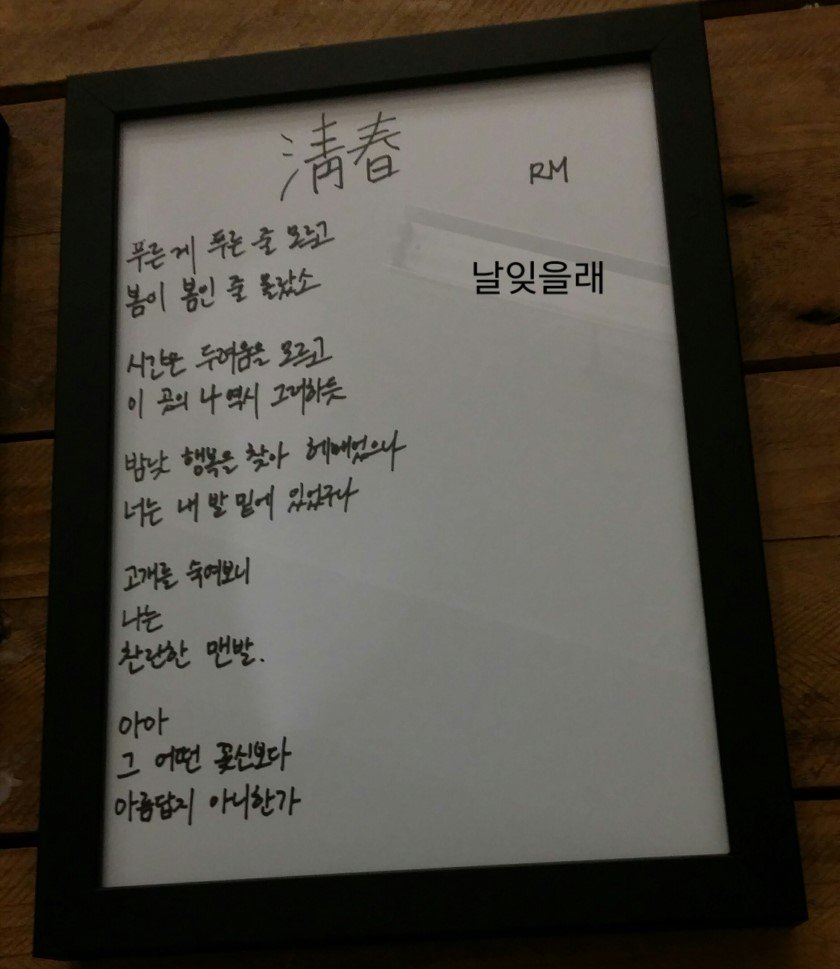 淸春
RM
날잊을래
푸른 게 푸른 줄 모르고
봄이 봄인 줄 몰랐소
시간은 두려움을 모르고
이 곳의 나 역시 그러하듯
밤낮 행복을 찾아 헤메었으나
너는 내 발 밑에 있었구나
고개를 숙여보니
나는
찬란한 맨발.
아아
그 어떤 꽃신보다
아름답지 아니한가